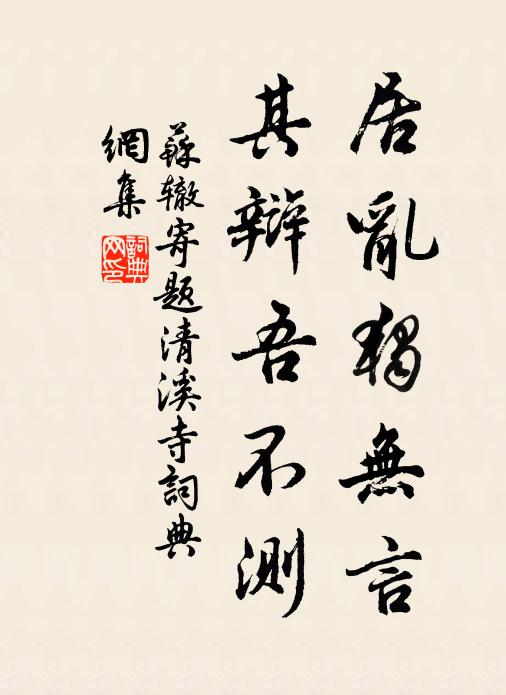 居亂獨無言
其辯吾不測
蘇辙寄題清溪寺詞典
網集
詞典
网印